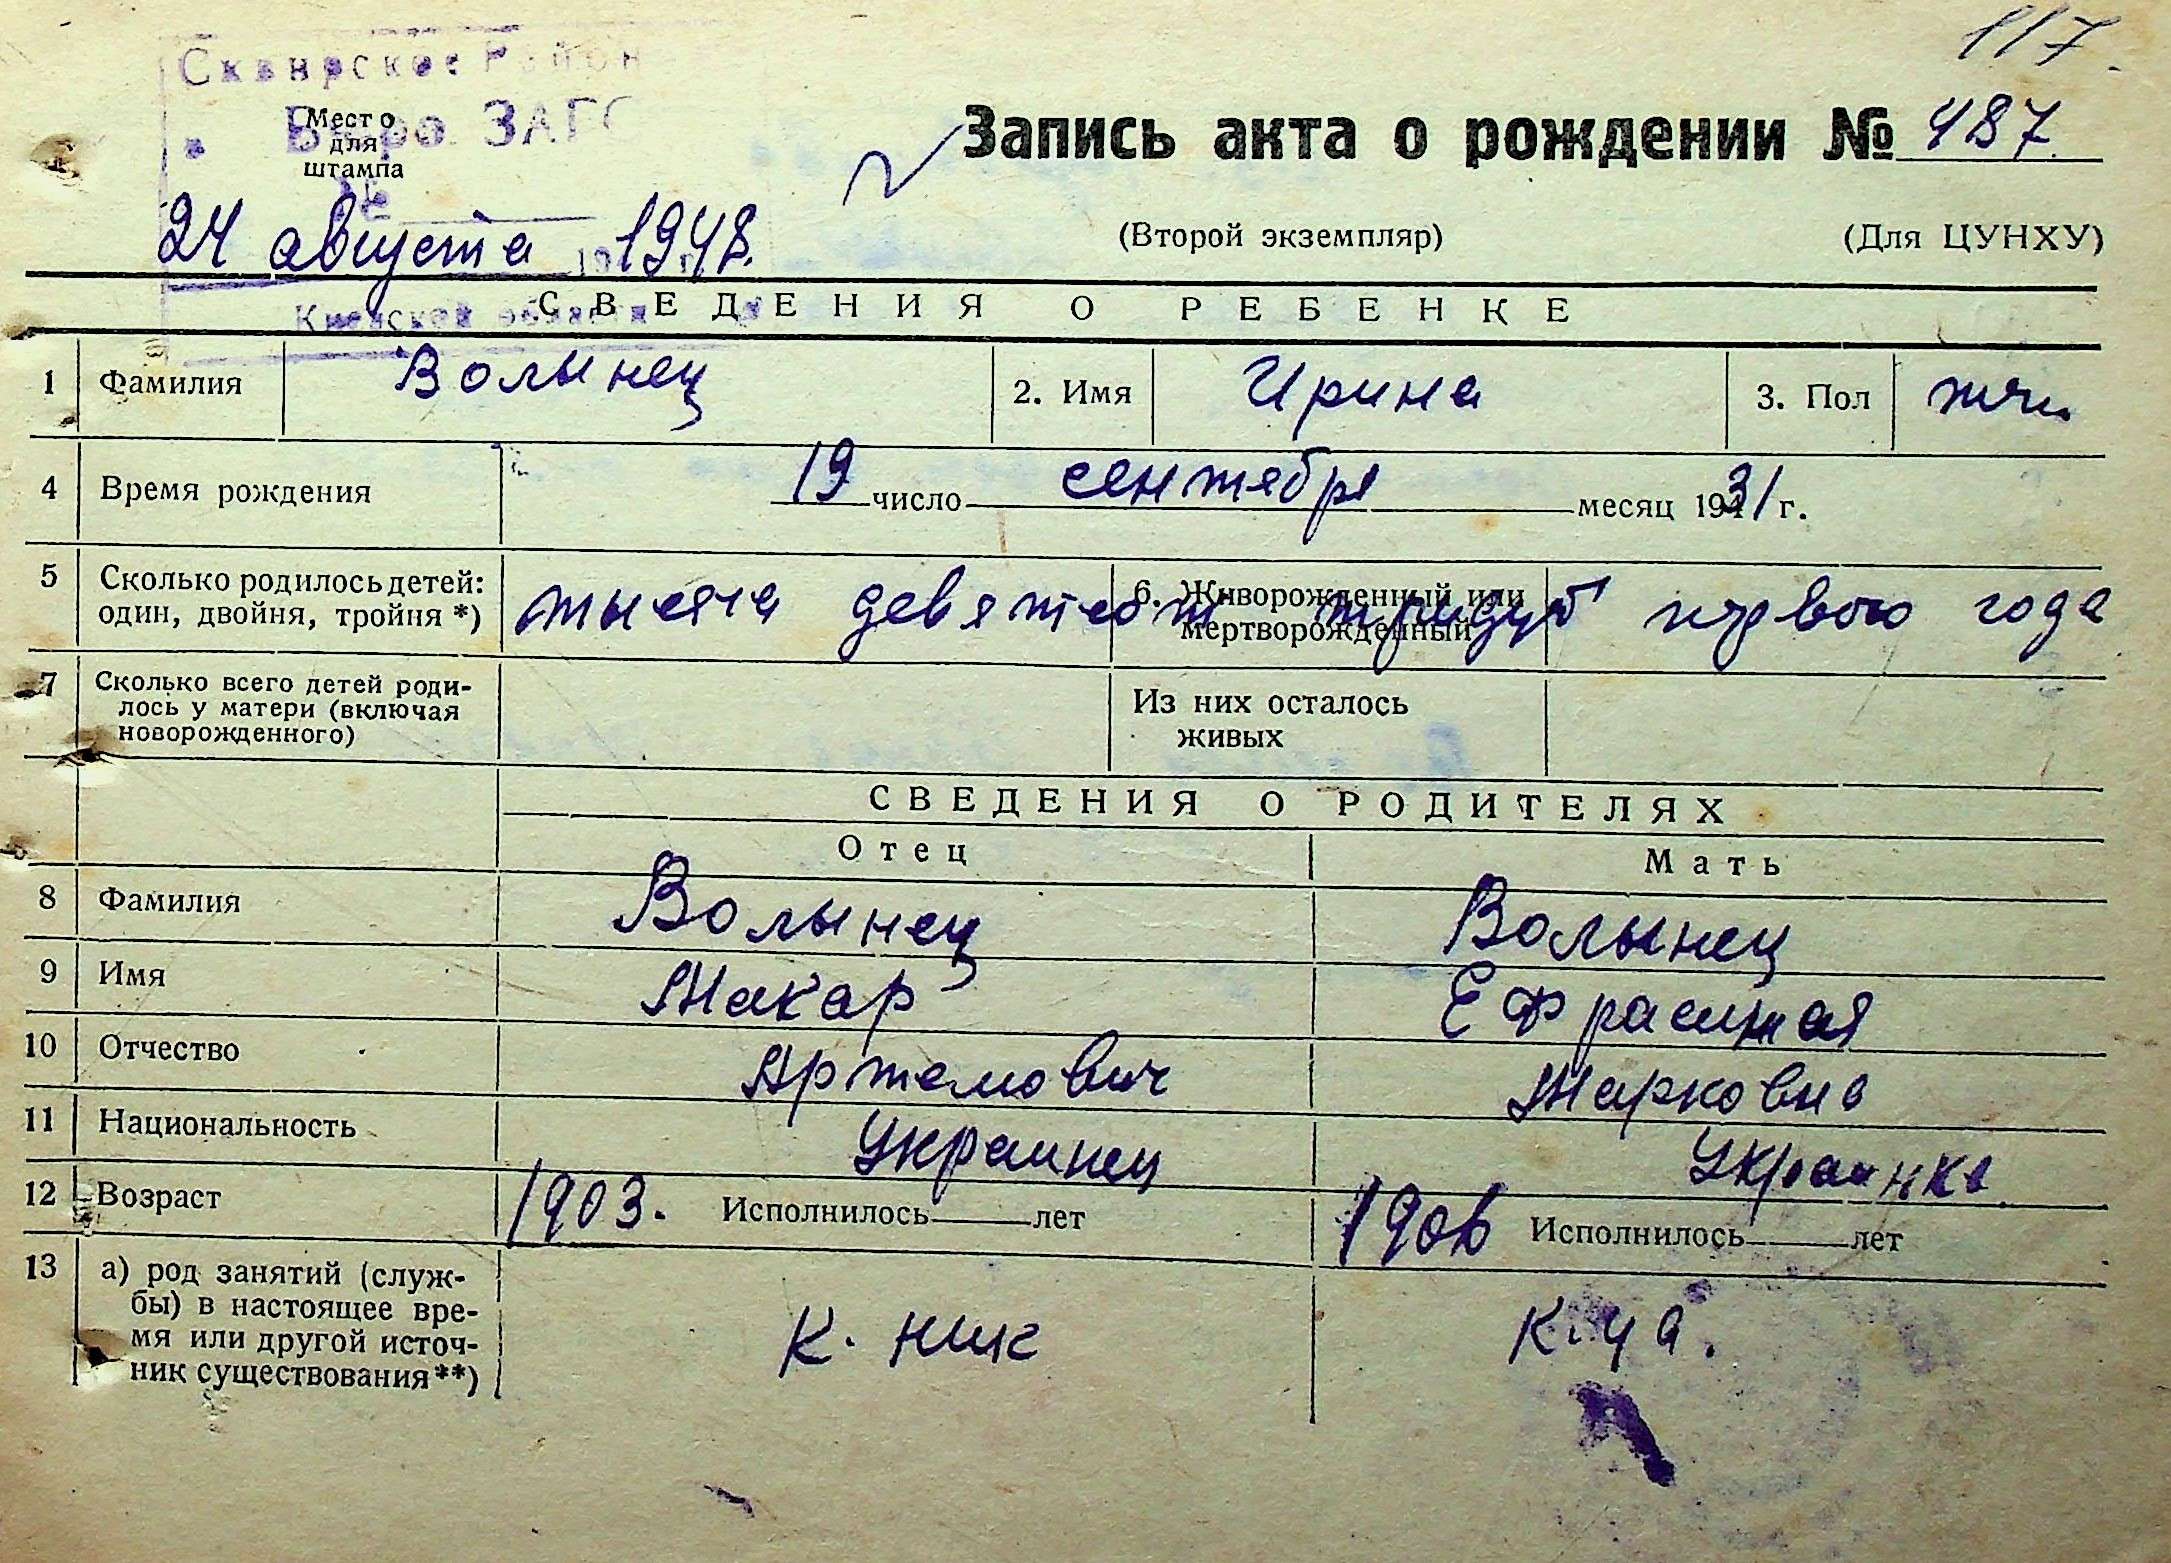 117.
Сквирское Район
Бюро ЗАГС
Место
для
штампа
№
Запись акта о рождении № 487
24 августа 1948.
(Второй экземпляр) (Для ЦУНХУ)
Киевской области
СВЕДЕНИЯ О РЕБЕНКЕ
1 Фамилия Волынец 2. Имя Ирина 3. Пол
4 Время рождения 19 число сентября месяц 1931 г.
5 Сколько родилось детей: 6. Живорожденный или
один, двойня, тройня *) мертворожденный
тысяча девятсот тридц первого года
7 Сколько всего детей роди- Из них осталось
лось у матери (включая живых
новорожденного)
СВЕДЕНИЯ О РОДИТЕЛЯХ
Отец Мать
8 Фамилия Волынец Волынец
9 Имя Макар Ефросиния
10 Отчество Артемович Марковна
11 Национальность Украинец Украинка
12 Возраст 1903. Исполнилось лет 1906 Исполнилось лет
13 а) род занятий (служ-
бы) в настоящее вре-
мя или другой источ-
ник существования **)
к. ник к-ца.